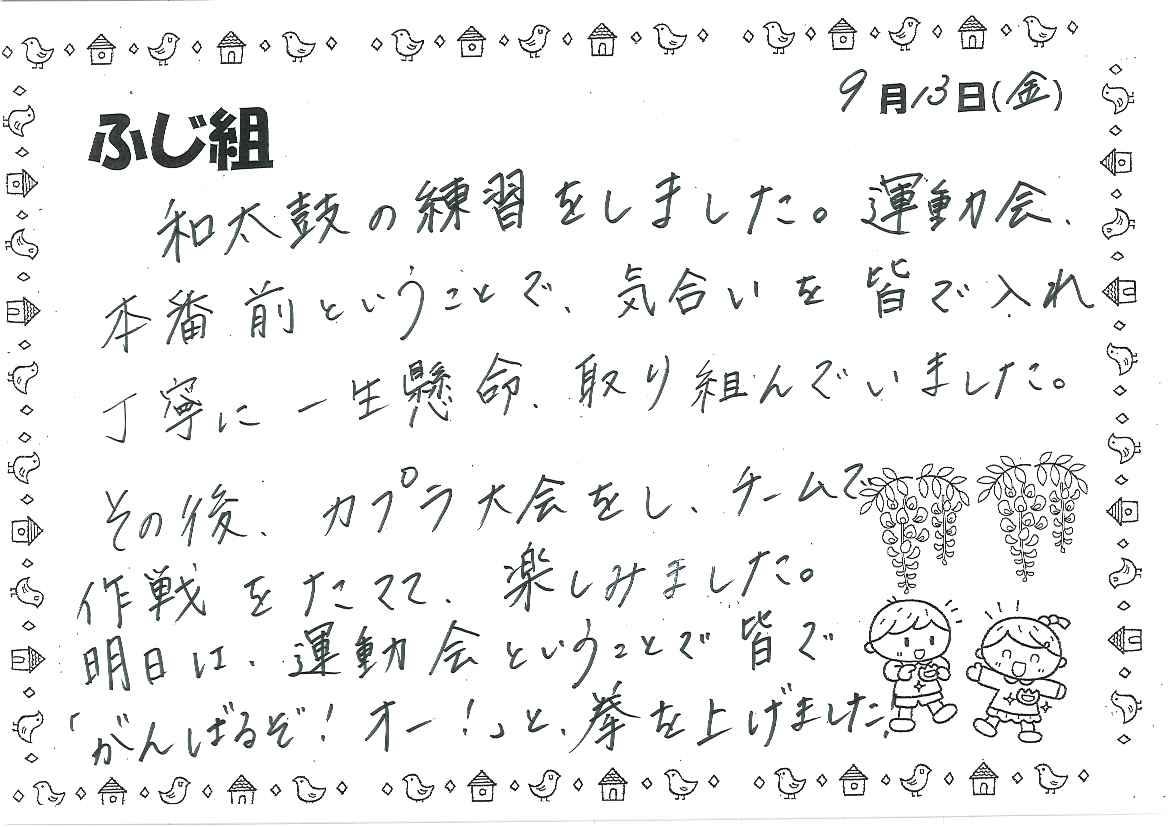 9月13日(金)
ふじ組
和太鼓の練習をしました。運動会、
本番前ということで、気合いを皆で入れ
丁寧に一生懸命、取り組んでいました。
その後、カプラ大会をし、チームで
作戦をたてて、楽しみました。
明日は、運動会ということで皆で
「がんばるぞ!オー!」と、拳を上げました!